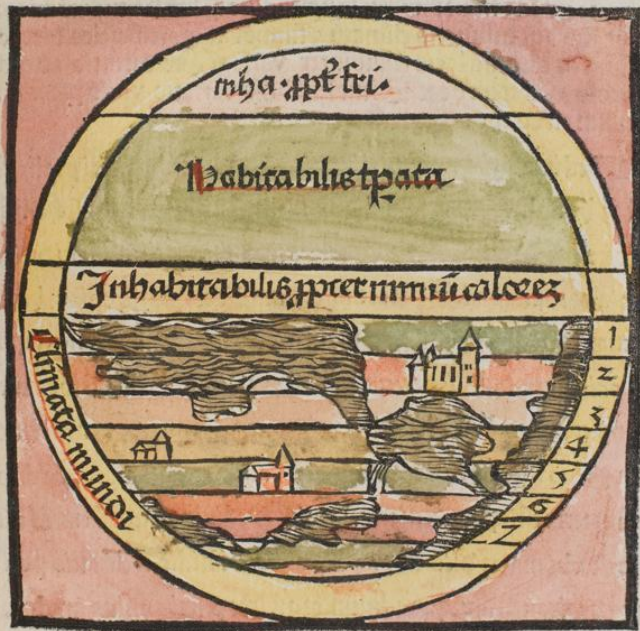 inha ꝓpt̄ fri.
Habitabilis tꝑata
Inhabitabilis ꝓpter nimiū calorez
Climata mundi
1
2
3
4
5
6
7